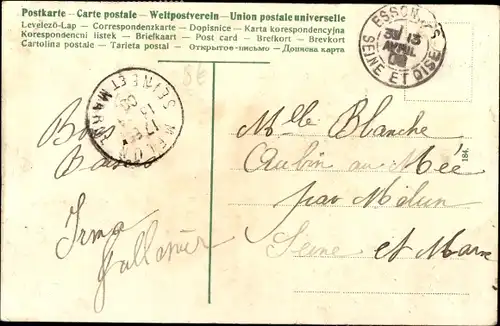 Postkarte – Carte postale – Weltpostverein – Union postale universelle
Levelező-Lap — Correspondenzkarte — Dopisnice — Karta korespondencyjna
Korespondencni lístek — Briefkaart — Post card — Brefkort — Brevkort
Cartolina postale — Tarjeta postal — Открытое письмо — Дописна карта
ESSONNES
13
AVRIL
08
SEINE ET OISE
MELUN
SEINE ET MARNE
Bons
Baisers
Irma
Melle Blanche
Aubin au Mée
par Melun
Seine et Marne
184.